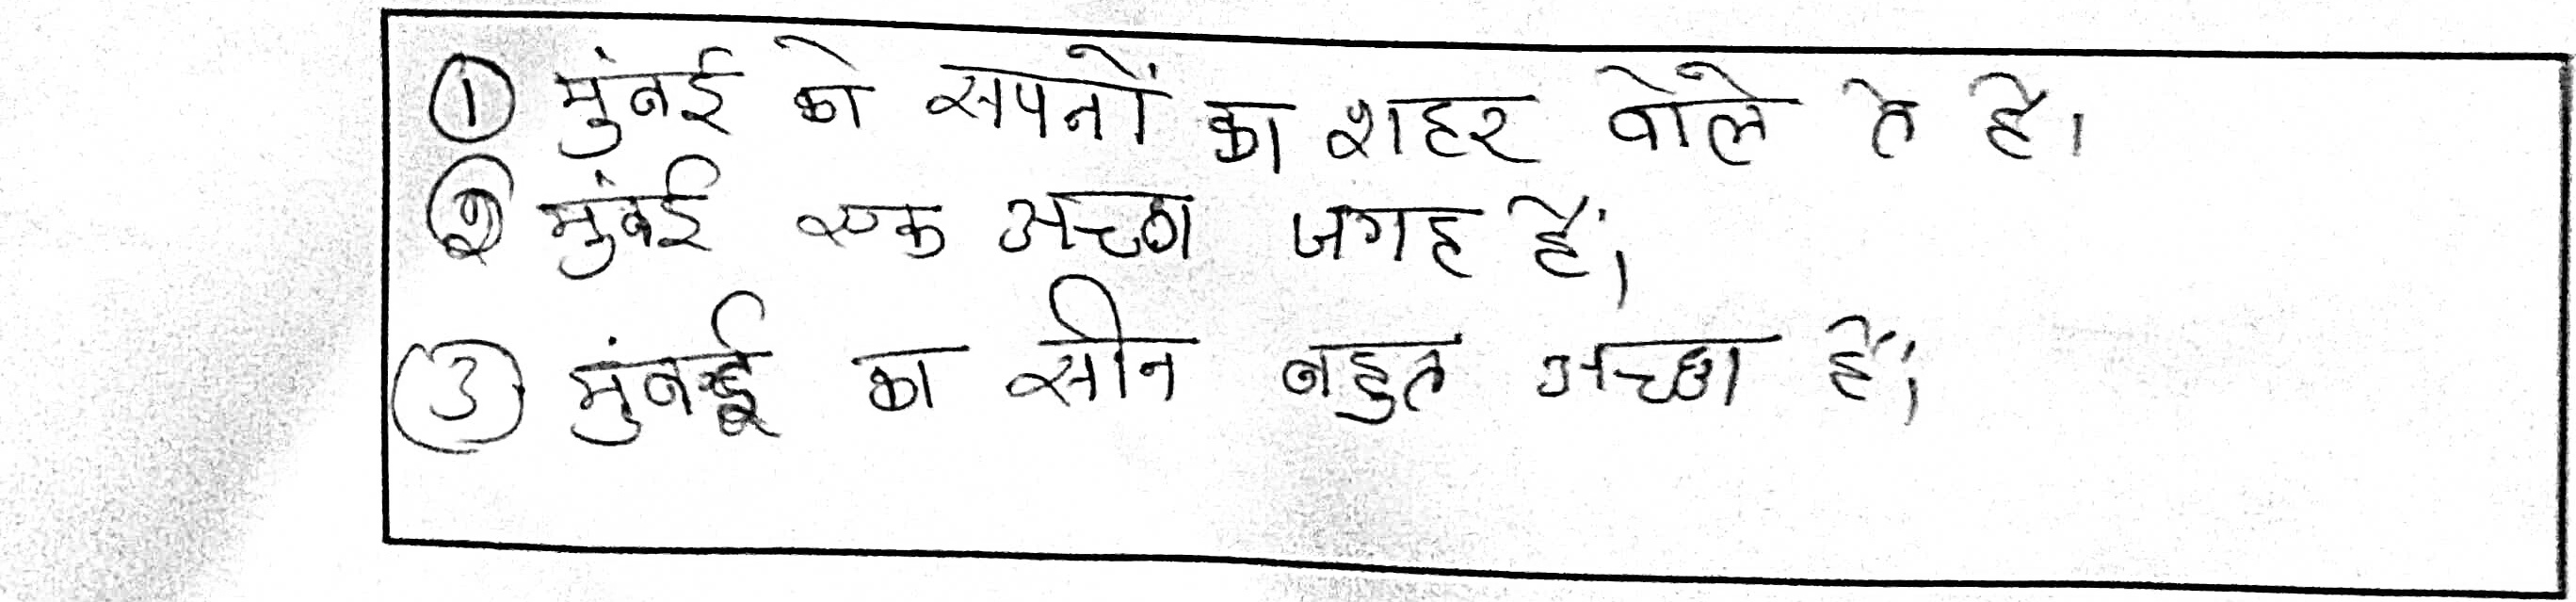 ① मुंबई को सपनों का शहर बोले ते है।
② मुंबई एक अच्छा जगह हैं।
③ मुंबई का सीन बहुत अच्छा हैं।